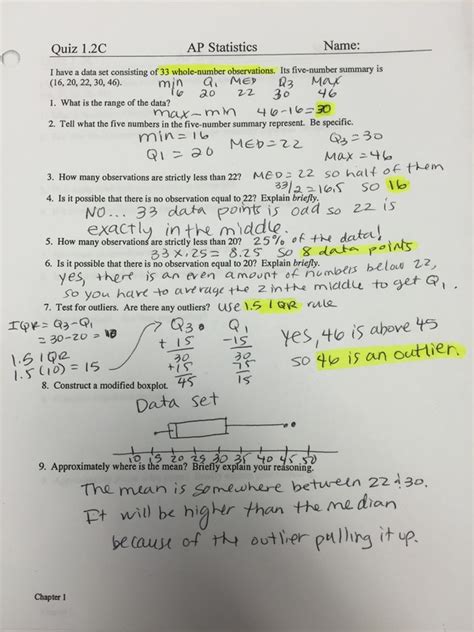 Quiz 1.2C AP Statistics Name:
I have a data set consisting of 33 whole-number observations. Its five-number summary is
(16, 20, 22, 30, 46). min Q1 MED Q3 Max
16 20 22 30 46
1. What is the range of the data?
max-min 46-16=30
2. Tell what the five numbers in the five-number summary represent. Be specific.
min = 16 MED=22 Q3=30
Q1 = 20 Max=46
3. How many observations are strictly less than 22? MED=22 so half of them
33/2=16.5 so 16
4. Is it possible that there is no observation equal to 22? Explain briefly.
NO... 33 data points is odd so 22 is
exactly in the middle.
5. How many observations are strictly less than 20? 25% of the data!
33 x .25 = 8.25 so 8 data points
6. Is it possible that there is no observation equal to 20? Explain briefly.
yes, there is an even amount of numbers below 22,
so you have to average the 2 in the middle to get Q1.
7. Test for outliers. Are there any outliers? use 1.5 IQR rule
IQR = Q3-Q1
= 30-20 = 10
1.5 IQR
1.5(10) = 15
Q3 Q1
+ 15 -15
30 30
+15 15
45 15
yes, 46 is above 45
so 46 is an outlier.
8. Construct a modified boxplot.
Data set
10 15 20 25 30 35 40 45 50
9. Approximately where is the mean? Briefly explain your reasoning.
The mean is somewhere between 22 & 30.
It will be higher than the median
because of the outlier pulling it up.
Chapter 1